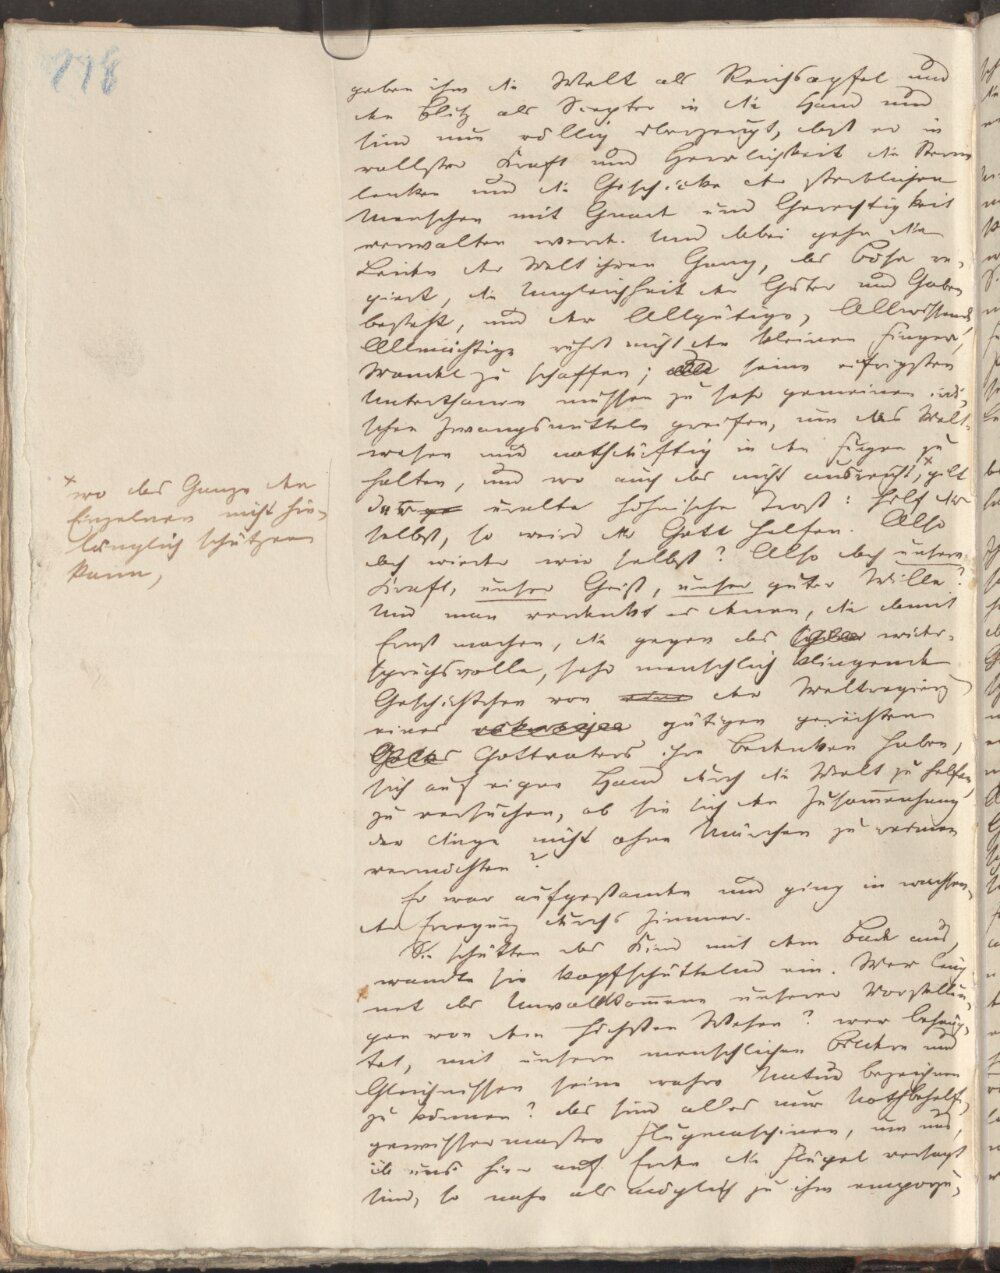 118
geben ihm die Welt als Reichsapfel und
den Blitz als Scepter in die Hand und
sind nun völlig überzeugt, daß er in
vollster Kraft und Herrlichkeit die Sterne
lenken und die Geschicke der sterblichen
Menschen mit Gnade und Gerechtigkeit
verwalten werde. Und dabei gehn die
Leiden der Welt ihren Gang, das Böse re-
giert, die Ungleichheit der Güter und Gaben
besteht, und der Allgütige, Allwissende,
Allmächtige rührt nicht den kleinen Finger,
Wandel zu schaffen; seine eifrigsten
Unterthanen müssen zu sehr gemeinen irdi-
schen Zwangsmitteln greifen, um das Welt-
wesen nur nothdürftig in den Fugen zu
halten, und wo auch das nicht ausreicht, × gilt
der uralte höhnische Trost: Hilf dir
selbst, so wird dir Gott helfen. Also
doch wieder wir selbst? Also doch unsere
Kraft, unser Geist, unser guter Wille?
Und man verdenkt es denen, die damit
Ernst machen, die gegen das wider-
spruchsvolle, sehr menschlich klingende
Geschichtchen von der Weltregierg
eines gütigen gerechten
Gottvaters ihre Bedenken haben,
sich auf eigne Hand durch die Welt zu helfen,
zu versuchen, ob sie sich den Zusam̄enhang
der Dinge nicht ohne Märchen zu reimen
vermöchten?
Er war aufgestanden und ging in wachsen-
der Erregung durchs Zimmer.
Sie schütten das Kind mit dem Bade aus,
wandte sie kopfschüttelnd ein. Wer läug-
net das Unvollkom̄ene unserer Vorstellun-
gen von dem höchsten Wesen? wer behaup-
tet, mit unsern menschlichen Bildern und
Gleichnissen seine wahre Natur bezeichnen
zu können? das sind alles nur Nothbehelfe,
gewissermaßen Flugmaschinen, um uns,
da uns hier auf Erden die Flügel versagt
sind, so nahe als möglich zu ihm emporzu-
× wo das Ganze den
Einzelnen nicht hin-
länglich schützen
kann,